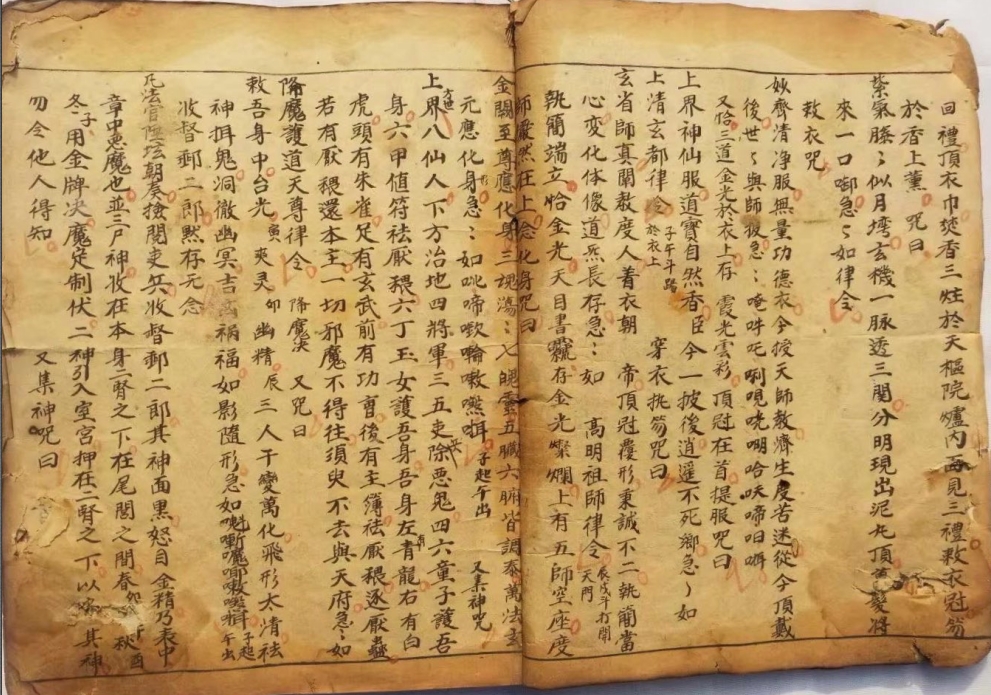 回禮頂衣巾焚香三炷於天樞院爐內再見三禮敕衣冠笏
於香上薰 咒曰
紫氣騰〻似月塆玄機一脉透三関分明現出泥丸頂
來一口啣急〻如律令
敕衣咒
妙齊清净服無量功德衣今授天師教濟生度苦迷從今頂戴
後世〻與師役急〻唵吽吒唎哯咣㗅哈㕭啼啪
又恰三道金光於衣上存 霞光雲彩 頂冠在首提服咒曰
上界神仙服道寶自然香臣今一披後逍遥不死鄉急〻如
上清玄都律令 子午斗 於衣上 穿衣执笏咒曰
玄省師真闡敎度人着衣朝 帝頂冠覆形秉誠不二執簡當
心变化体像道炁長存急〻如 高明祖師律令 天門
執簡端立恰金光天目書 存金光燦爛上有五師空座度
師嚴然在上念化身咒曰
金闕至尊應化身三魂 〻七魄靈五臟六腑皆調泰萬法玄
元應化身急〻如 子起午出 又集神咒
上界八仙人下方治地四將軍三五吏除惡鬼四六童子護吾
身六甲值符祛厭穢六丁玉女護吾身吾身左青龍右有白
虎頭有朱雀足有玄武前有功曹後有主簿祛厭穢逐厭蠱
若有厭穢還本主一切邪魔不得往須臾不去與天府急〻如
降魔護道天尊律令 降魔决 又咒曰
敕吾身中台光 寅 爽灵 卯 幽精 辰 三人千變萬化飛形太清祛
神捐鬼洞徹幽冥吉 禍福如影隨形急如 子起午出
收督郵二郎黙存无念
凡法官陞坛朝奏撿閱吏兵收督郵二郎其神面黒怒目金精乃表中
章中悪魔也並三尸神收在本身二腎之下在尾閭之間春 秋酉
冬子用金牌决魔定制伏二神引入室宮押在二腎之下以 其神
勿令他人得知 又集神咒曰